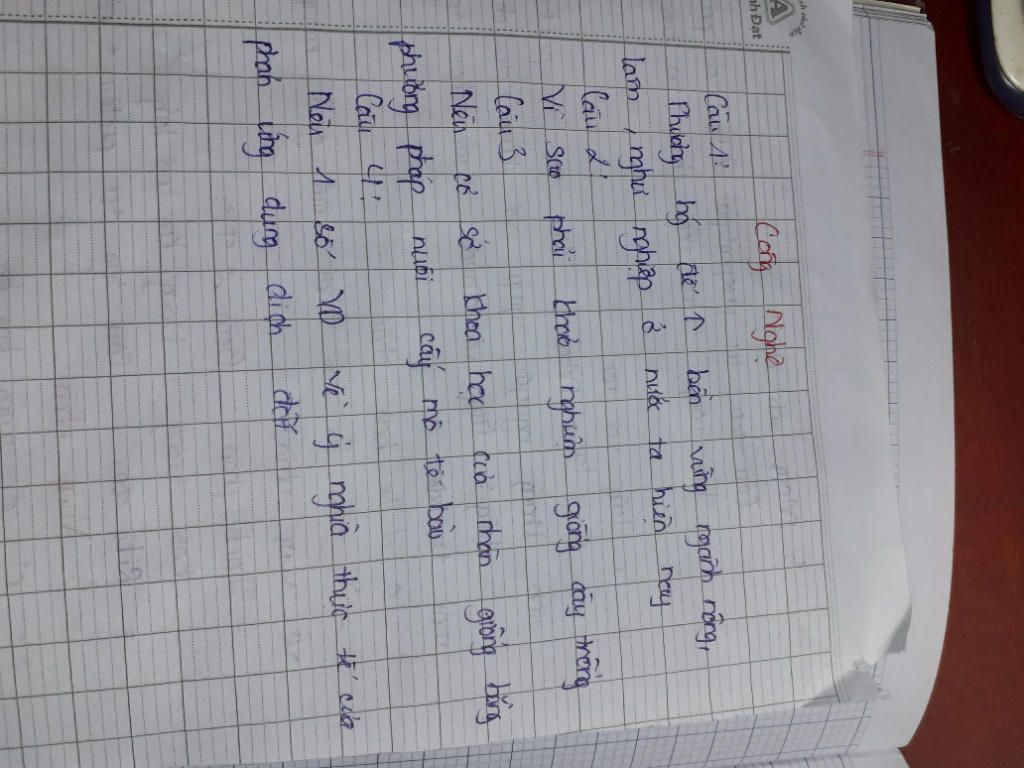 Công Nghệ
Câu 1:
Phương hg để ↑ bền vững ngành nông,
lâm, ngư nghiệp ở nước ta hiện nay
Câu 2:
Vì sao phải khảo nghiệm giống cây trồng
Câu 3
Nêu cơ sở khoa học của nhân giống bằng
phương pháp nuôi cấy mô tế bào
Câu 4:
Nêu 1 số VD về ý nghĩa thực tế của
phản ứng dung dịch đất